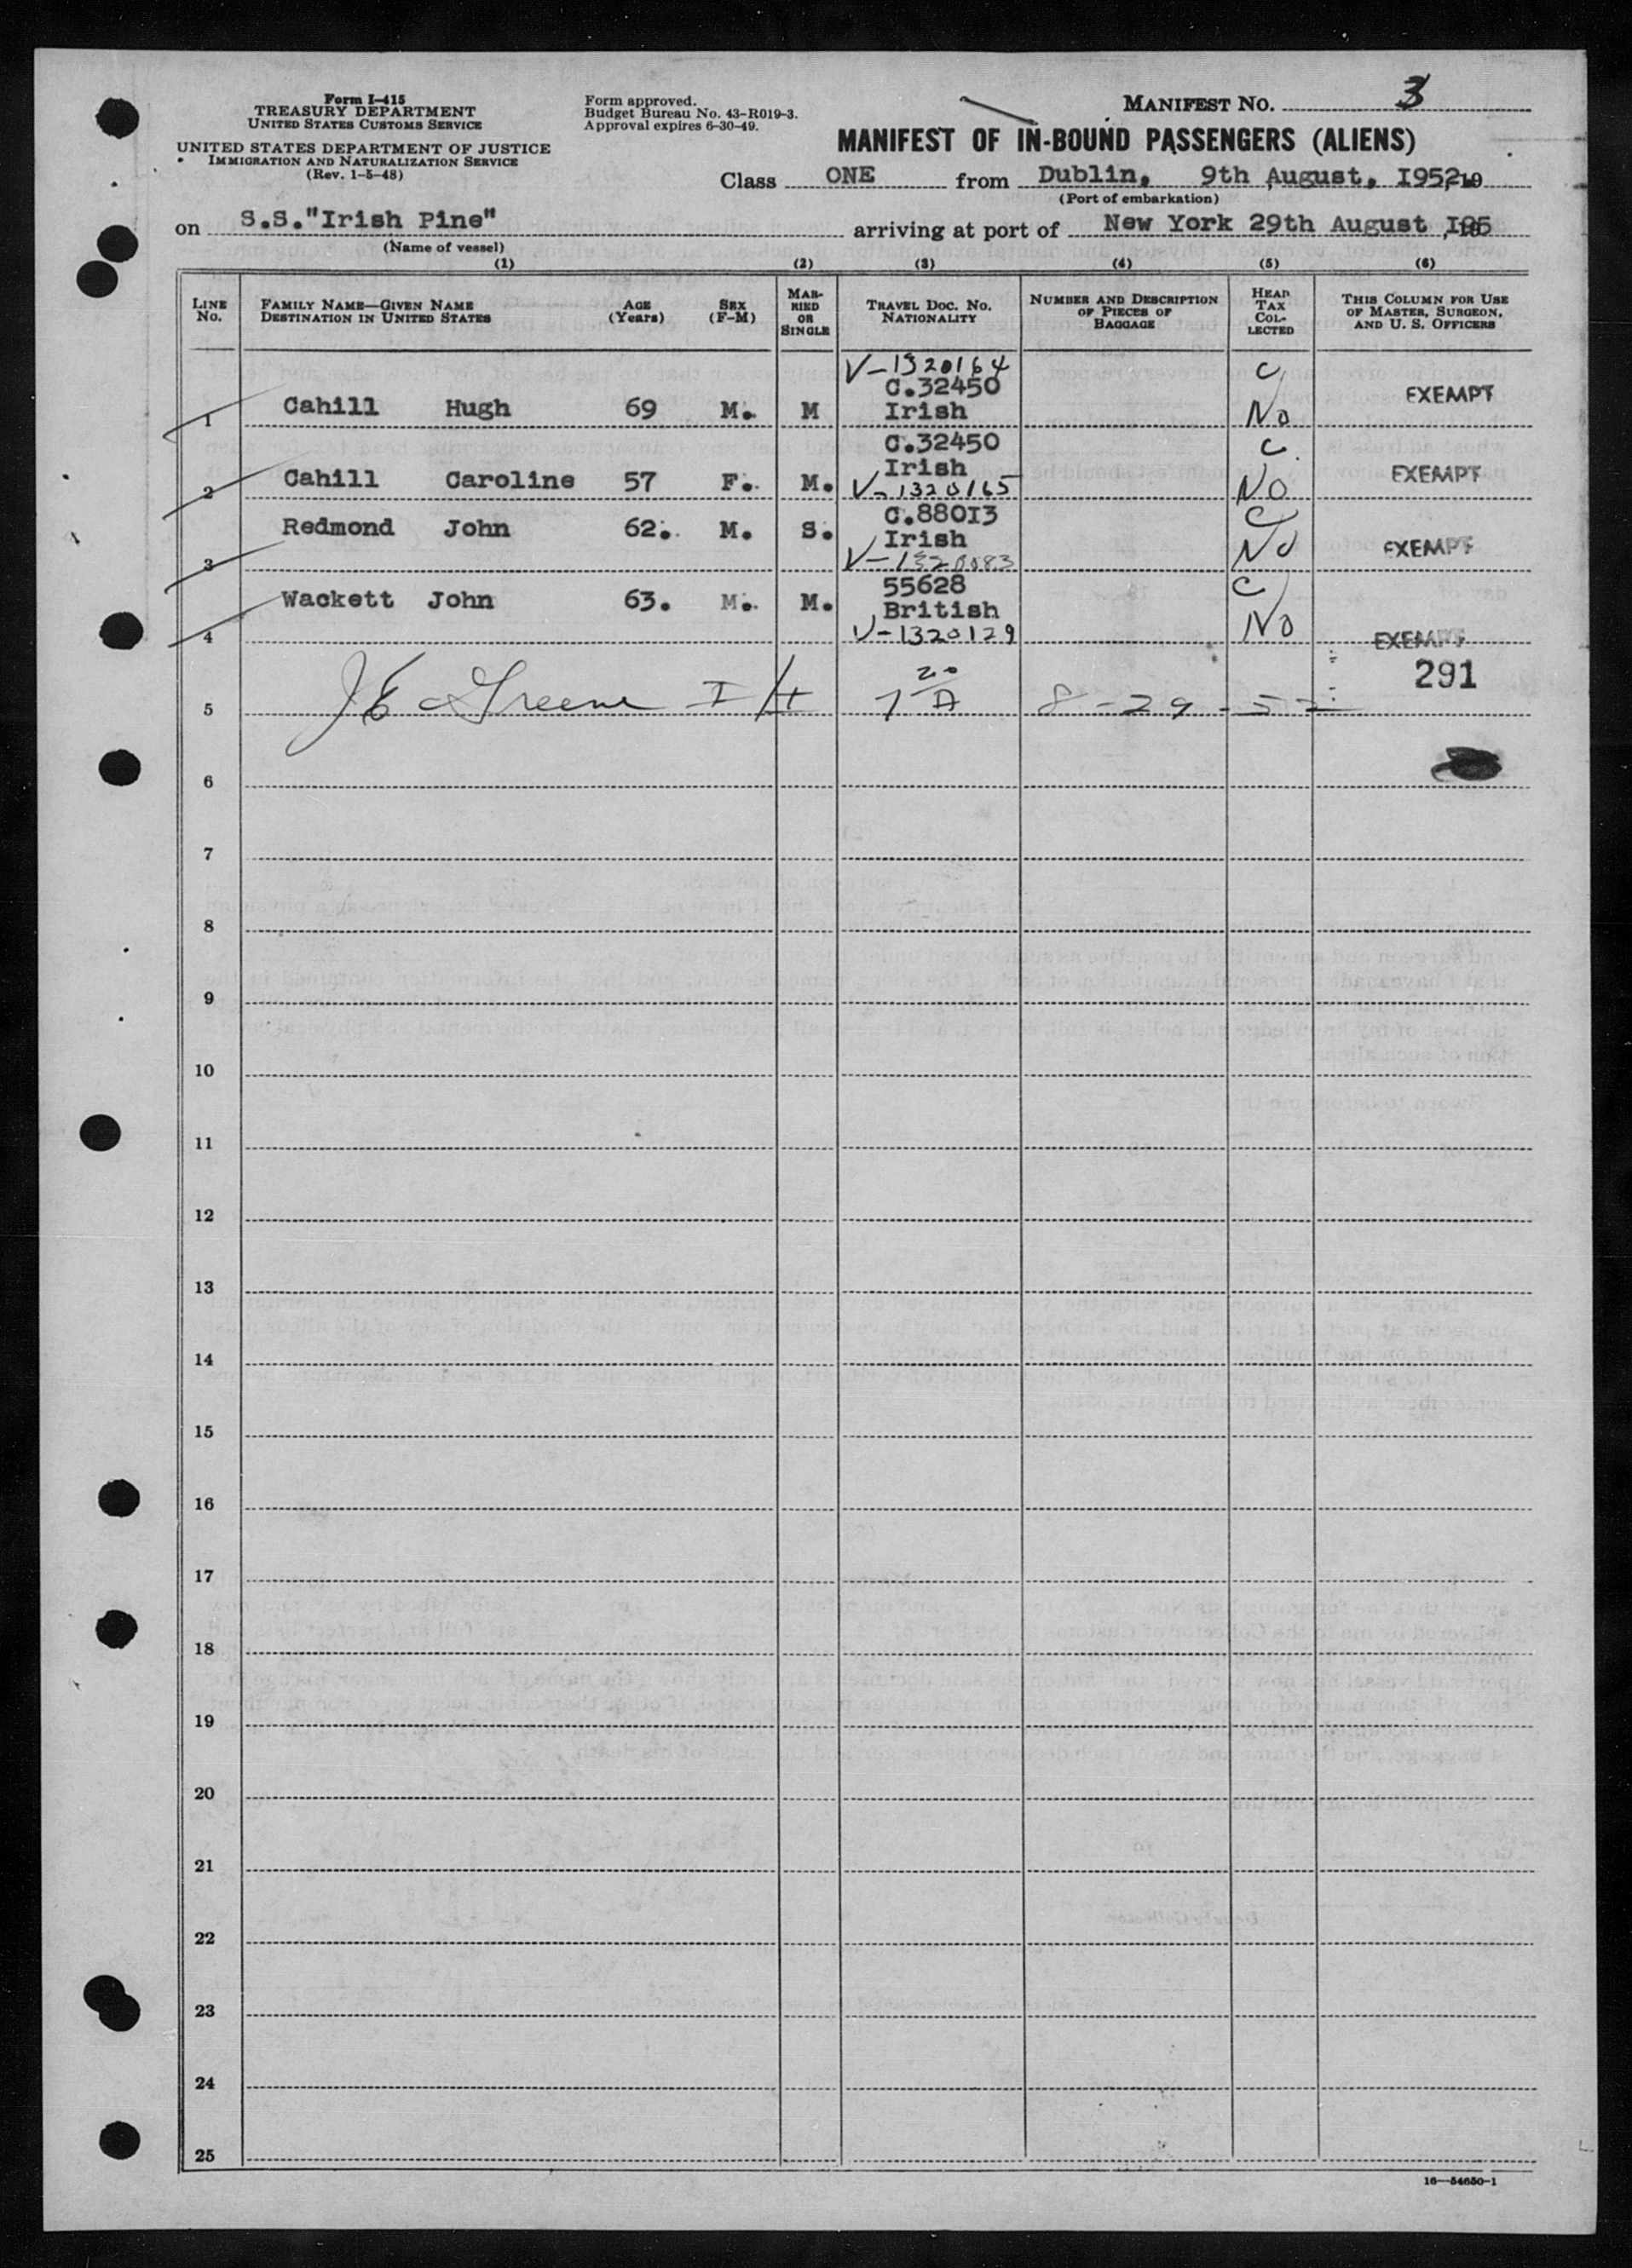 Form I-415
TREASURY DEPARTMENT
UNITED STATES CUSTOMS SERVICE
UNITED STATES DEPARTMENT OF JUSTICE
IMMIGRATION AND NATURALIZATION SERVICE
(Rev. 1-5-48)
Form approved.
Budget Bureau No. 43-R019-3.
Approval expires 6-30-49.
MANIFEST NO. 3
MANIFEST OF IN-BOUND PASSENGERS (ALIENS)
Class ONE from Dublin, 9th August, I952
(Port of embarkation)
on S.S."Irish Pine" arriving at port of New York 29th August
(Name of vessel)
(1) (2) (3) (4) (5) (6)
LINE NO.
FAMILY NAME—GIVEN NAME
DESTINATION IN UNITED STATES
AGE (Years)
SEX (F-M)
MARRIED OR SINGLE
TRAVEL DOC. NO.
NATIONALITY
NUMBER AND DESCRIPTION OF PIECES OF BAGGAGE
HEAD TAX COLLECTED
THIS COLUMN FOR USE OF MASTER, SURGEON, AND U. S. OFFICERS
V-1320164 C
C.32450 EXEMPT
1 Cahill Hugh 69 M. M Irish No
C.32450 C
Irish EXEMPT
2 Cahill Caroline 57 F. M. V-1320165 No
Redmond John 62. M. S. C.88OI3 C
Irish No EXEMPT
3 V-1320083
Wackett John 63. M. M. 55628 C
British No
4 V-1320129 EXEMPT
291
5 J E Greene 8-29-52
6
7
8
9
10
11
12
13
14
15
16
17
18
19
20
21
22
23
24
25
16—54650-1